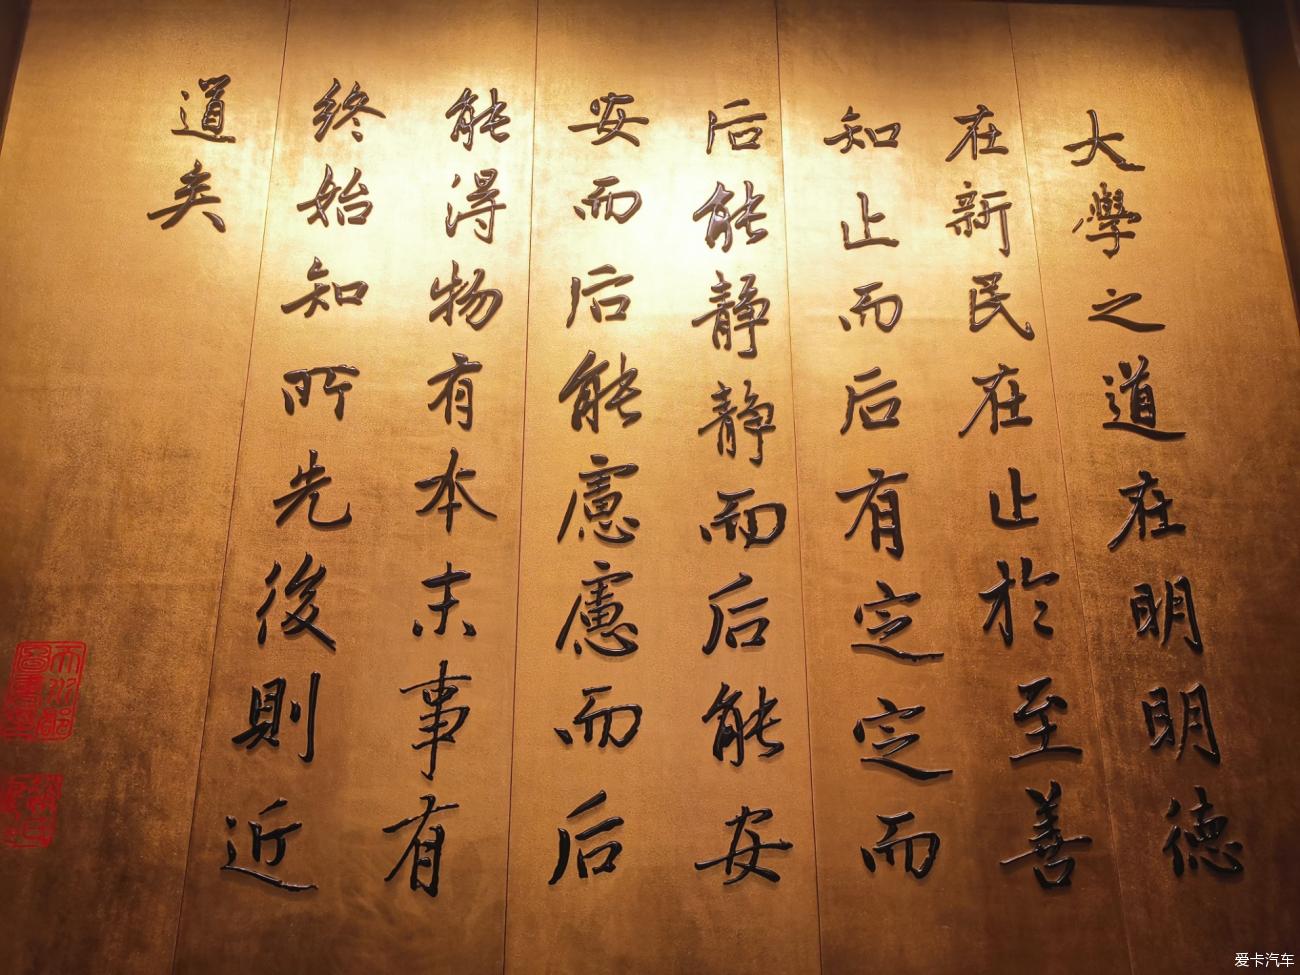 大學之道在明明德
在新民在止於至善
知止而后有定定而
后能静静而后能安
安而后能慮慮而后
能得物有本末事有
終始知所先後則近
道矣
爱卡汽车